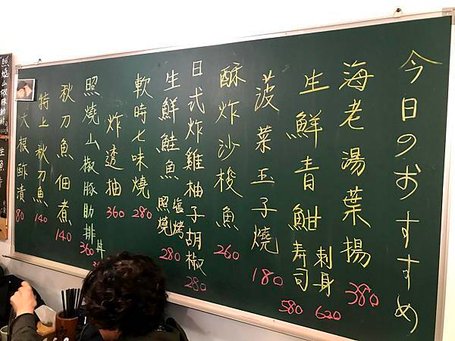 今日のおすすめ
海老湯葉揚 380
生鮮青魽 刺身 620
壽司 580
菠菜玉子燒 180
酥炸沙梭魚 260
日式炸雞柚子胡椒 280
生鮮鮭魚 塩烤 照燒 280
軟時七味燒 280
炸透抽 360
照燒山椒豚肋排 360
秋刀魚佃煮 140
特上秋刀魚 140
大根酢漬 80